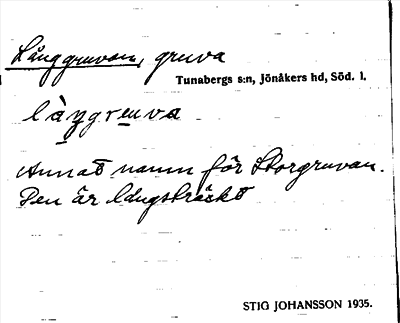 Långgruvan, gruva
Tunabergs s:n, Jönåkers hd, Söd. l.
Annat namn för Storgruvan.
Den är långsträckt
STIG JOHANSSON 1935.